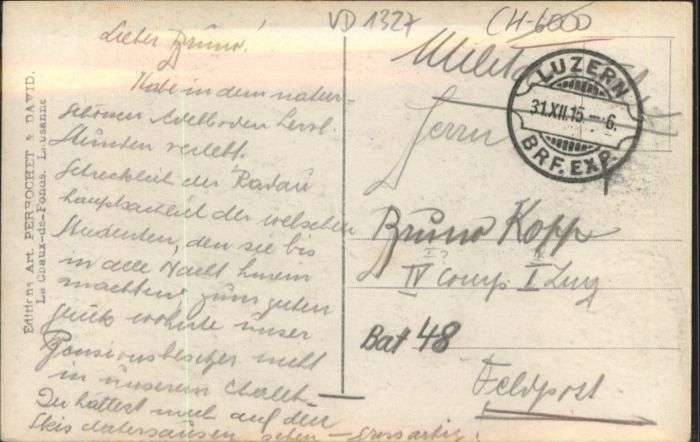 VD 1327
CH-6000
Lieber Bruno!
Habe in dem natur-
schönen Adelboden herrl.
Stunden verlebt.
Schrecklich der Radau
hauptsächlich der welschen
Studenten, den sie bis
in alle Nacht hinein
machten, zum guten
Glück wohnte unser
Pensionsbesitzer nicht
in unserem Chalet.
Du hättest mich auf den
Skis heruntersausen sehen – grossartig!
Editions Art. PERROCHET & DAVID.
La Chaux-de-Fonds. Lausanne
LUZERN
31.XII.15–6.
BRF. EXP.
Herrn
Bruno Kopp
IV Comp I Zug
Bat 48
Feldpost